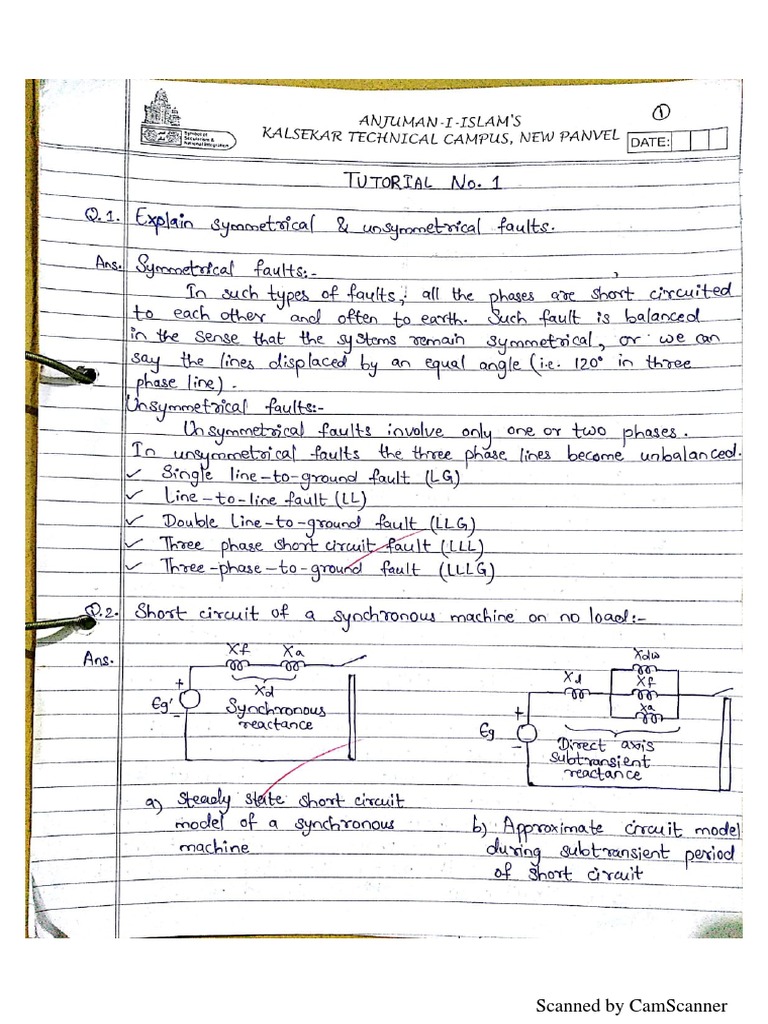 ①
ANJUMAN-I-ISLAM'S
KALSEKAR TECHNICAL CAMPUS, NEW PANVEL
DATE:
Symbol of
Secularism &
National Integration
TUTORIAL No. 1
Q.1. Explain symmetrical & unsymmetrical faults.
Ans. Symmetrical faults:-
In such types of faults, all the phases are short circuited
to each other and often to earth. Such fault is balanced
in the sense that the systems remain symmetrical, or we can
say the lines displaced by an equal angle (i.e. 120° in three
phase line).
Unsymmetrical faults:-
Unsymmetrical faults involve only one or two phases.
In unsymmetrical faults the three phase lines become unbalanced.
✓ Single line-to-ground fault (LG)
✓ Line-to-line fault (LL)
✓ Double Line-to-ground fault (LLG)
✓ Three phase short circuit fault (LLL)
✓ Three-phase-to-ground fault (LLLG)
Q.2. Short circuit of a synchronous machine on no load:-
Ans.
Xf Xa
Xd
+
Eg'
-
Synchronous
reactance
a) Steady state short circuit
model of a synchronous
machine
Xdw
Xf
Xa
Xl
+
Eg
-
Direct axis
subtransient
reactance
b) Approximate circuit model
during subtransient period
of short circuit
Scanned by CamScanner